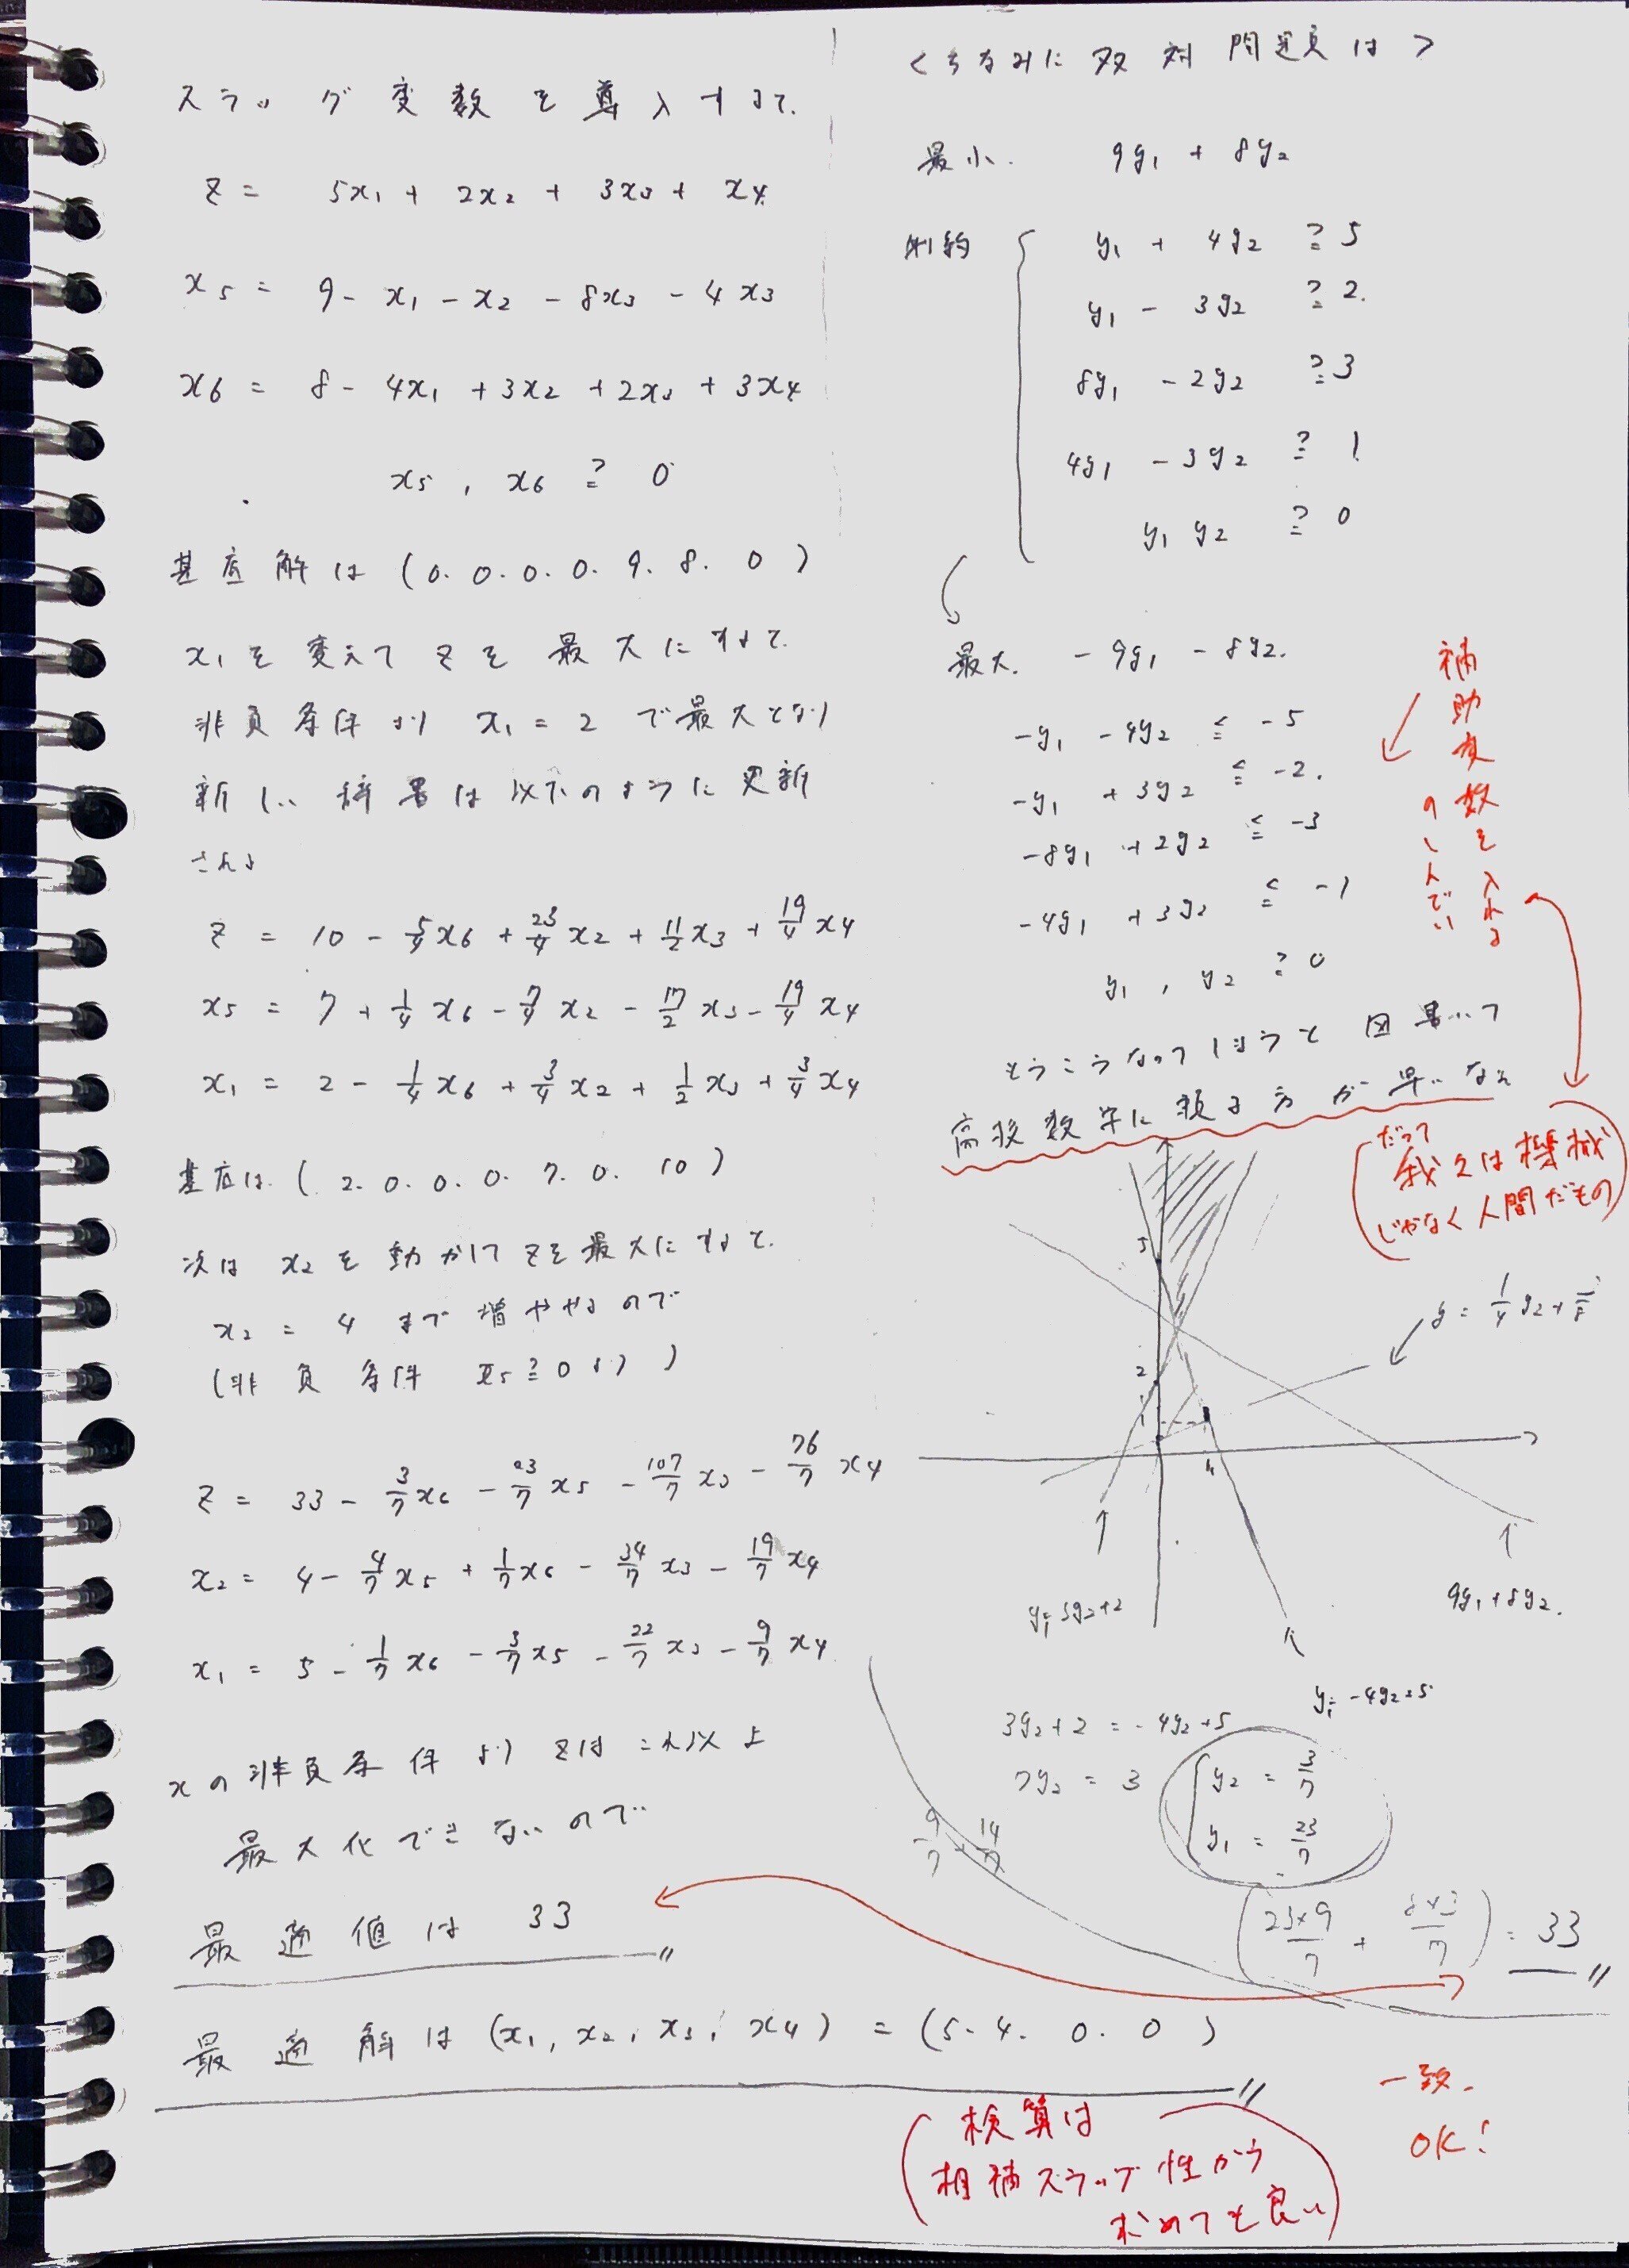 スラック変数を導入すると.
z = 5x₁ + 2x₂ + 3x₃ + x₄
x₅ = 9 - x₁ - x₂ - 8x₃ - 4x₃
x₆ = 8 - 4x₁ + 3x₂ + 2x₃ + 3x₄
x₅, x₆ ≧ 0
基底解は (0. 0. 0. 0. 9. 8. 0)
x₁を変えて zを 最大にすると.
非負条件より x₁ = 2 で最大となり
新しい辞書は以下のように更新
される
z = 10 - 5/4 x₆ + 23/4 x₂ + 11/2 x₃ + 19/4 x₄
x₅ = 7 + 1/4 x₆ - 7/4 x₂ - 17/2 x₃ - 19/4 x₄
x₁ = 2 - 1/4 x₆ + 3/4 x₂ + 1/2 x₃ + 3/4 x₄
基底は. (2. 0. 0. 0. 7. 0. 10)
次は x₂を動かして zを最大にすると.
x₂ = 4 まで増やせるので
(非負条件 x₅ ≧ 0 より)
z = 33 - 3/7 x₆ - 23/7 x₅ - 107/7 x₃ - 76/7 x₄
x₂ = 4 - 4/7 x₅ + 1/7 x₆ - 34/7 x₃ - 19/7 x₄
x₁ = 5 - 1/7 x₆ - 3/7 x₅ - 22/7 x₃ - 9/7 x₄
xの非負条件より zはこれ以上
最大化できないので
最適値は 33
最適解は (x₁, x₂, x₃, x₄) = (5. 4. 0. 0)
<ちなみに双対問題は>
最小. 9y₁ + 8y₂
制約
y₁ + 4y₂ ≧ 5
y₁ - 3y₂ ≧ 2.
8y₁ - 2y₂ ≧ 3
4y₁ - 3y₂ ≧ 1
y₁ y₂ ≧ 0
最大. -9y₁ - 8y₂.
-y₁ - 4y₂ ≦ -5
-y₁ + 3y₂ ≦ -2.
-8y₁ + 2y₂ ≦ -3
-4y₁ + 3y₂ ≦ -1
y₁, y₂ ≧ 0
補助変数を入れる
のしんでい
もうこうなってしまうと 図書いて
高校数学に頼る方が早いなん
(だって
我々は機械
じゃなく人間だもの)
5
2
1
4
y = 1/4 y₂ +
y₁=3y₂+2
9y₁+8y₂.
y₁=-4y₂+5
3y₂+2 = -4y₂+5
7y₂ = 3
y₂ = 3/7
y₁ = 23/7
9/7 + 14/7
(23×9/7 + 8×3/7) = 33
一致.
OK!
(検算は
相補スラック性から
求めても良い)